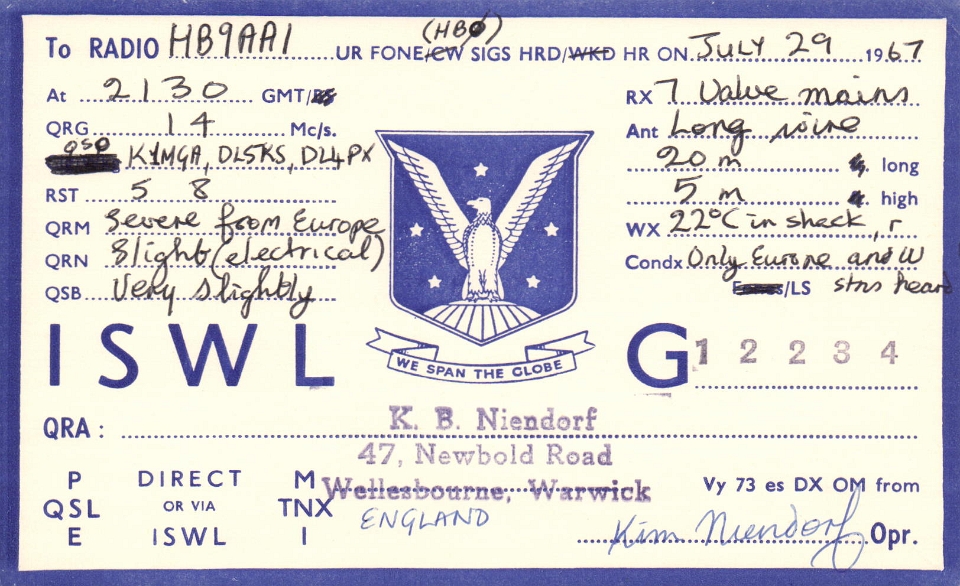 (HBØ)
To RADIO HB9AAI UR FONE/CW SIGS HRD/WKD HR ON JULY 29 1967
At 2130 GMT/
RX 7 Valve mains
QRG 14 Mc/s.
Ant Long wire
QSO K1MGA, DL5KS, DL4PX
20 m long
RST 5 8
5 m high
QRM Severe from Europe
WX 22°C in shack, r
QRN Slight (electrical)
Condx Only Europe and W
QSB Very slightly
/LS stns heard
ISWL
WE SPAN THE GLOBE
G12234
QRA: K. B. Niendorf
47, Newbold Road
Wellesbourne, Warwick
ENGLAND
PSE QSL DIRECT OR VIA ISWL
MNI TNX
Vy 73 es DX OM from
Kim Niendorf Opr.